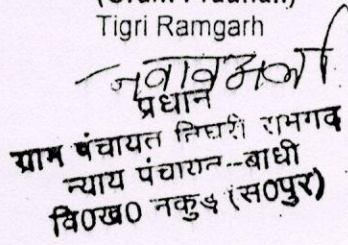 (Gram Pradhan)
Tigri Ramgarh
नवाब अली
प्रधान
ग्राम पंचायत तिघरी रामगढ
न्याय पंचायत--बाधी
वि0ख0 नकुड (स0पुर)